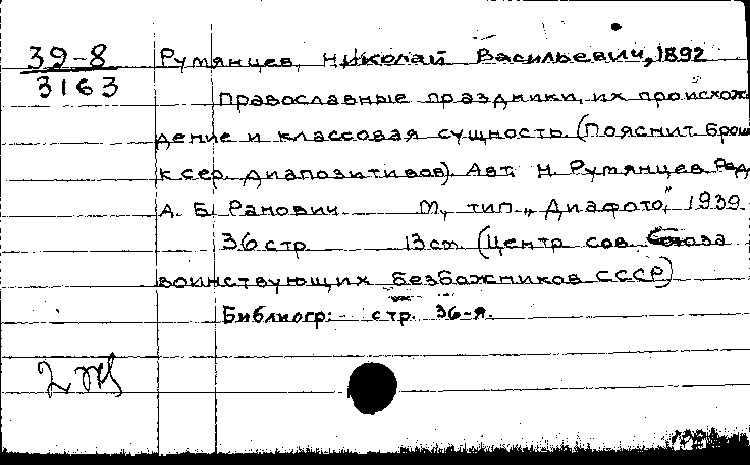 39-8
3163
Румянцев, Николай Васильевич, 1892
Православные праздники, их происхож
дение и классовая сущность. (Пояснит. брош
к сер. диапозитивов). Авт. Н. Румянцев. Ред.
А. Б. Ранович. М., тип. „Диафото," 1939
36 стр. 13 см. (Центр. сов. Союза
воинствующих безбожников СССР)
Библиогр: стр. 36-я.